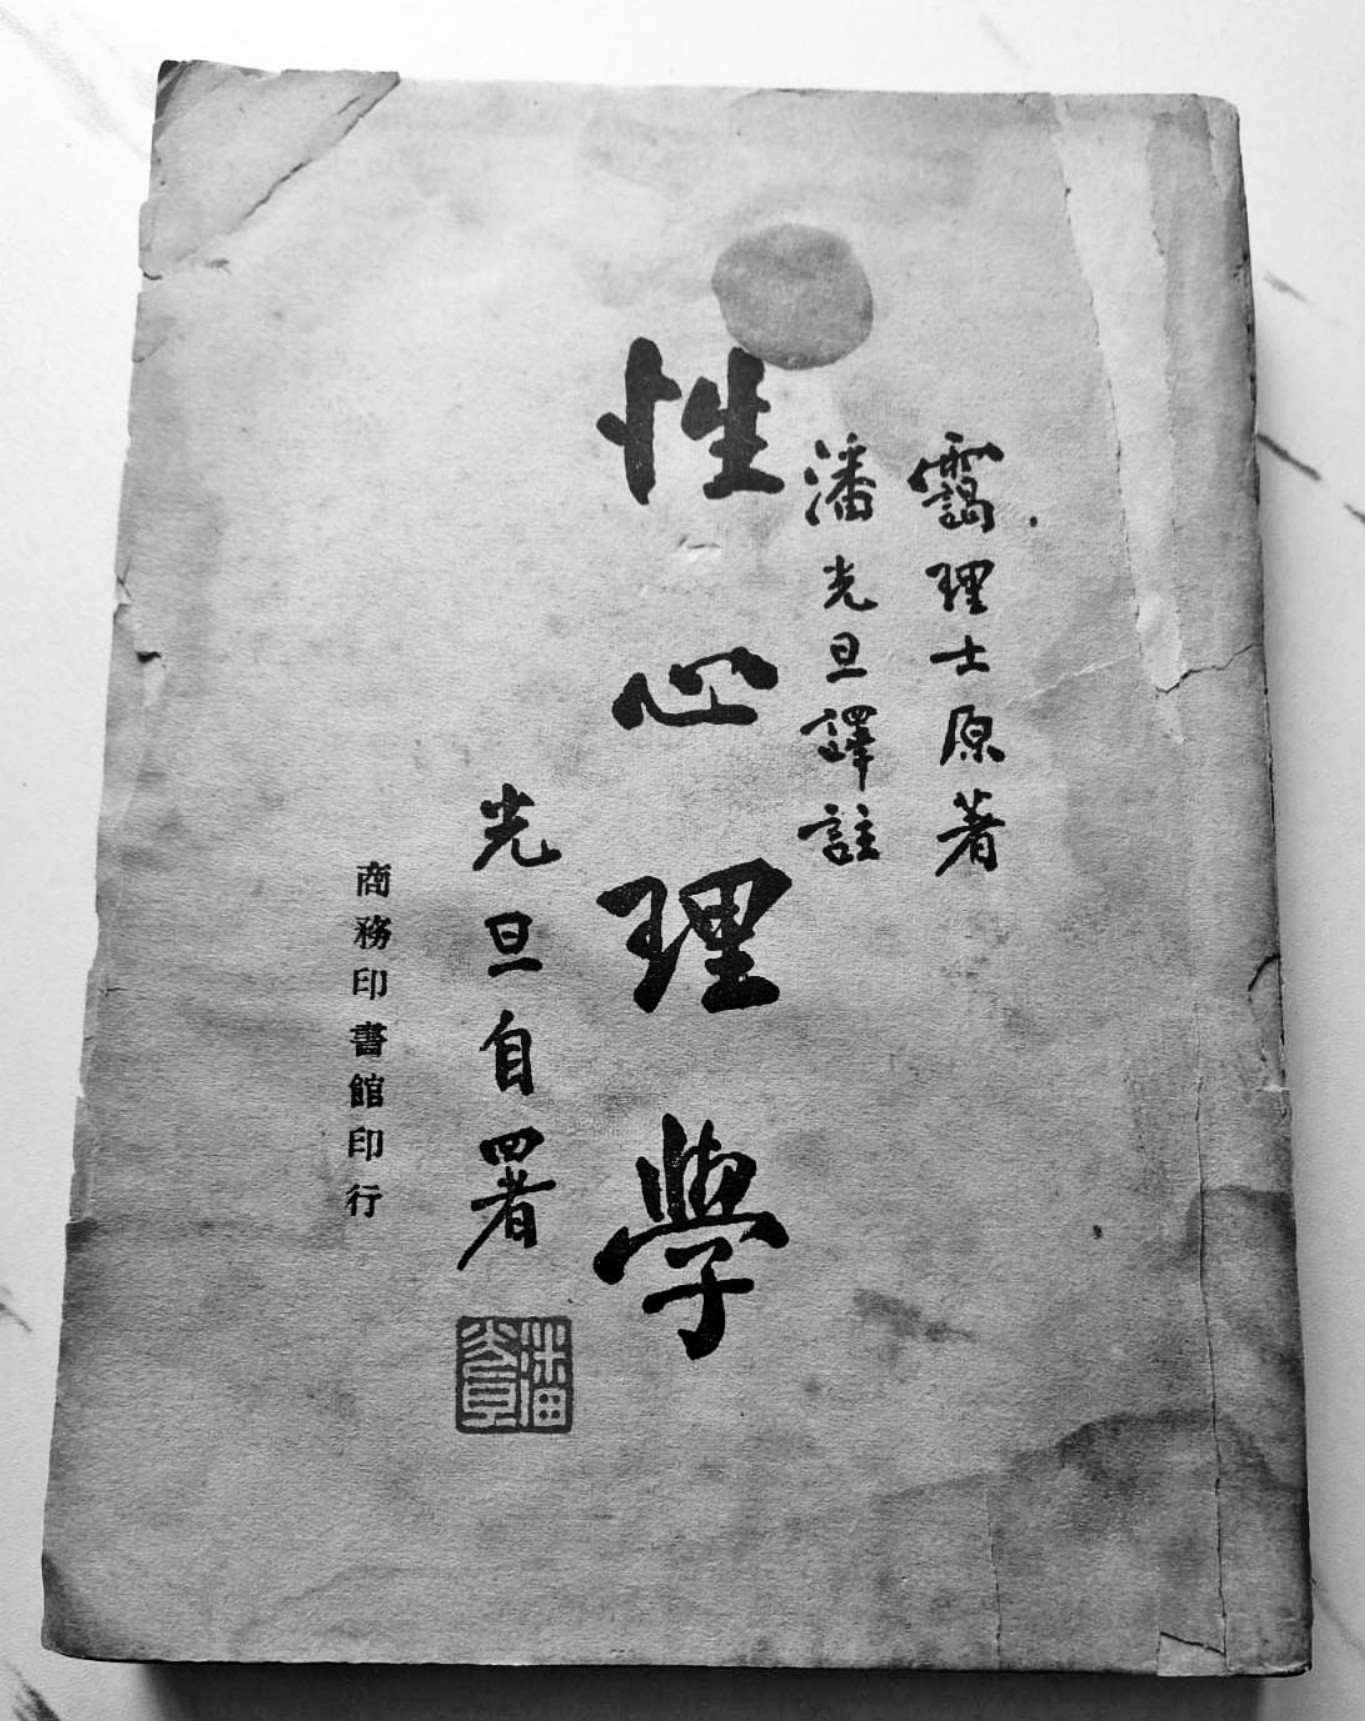 靄理士原著
潘光旦譯註
性心理學
光旦自署
潘光旦
商務印書館印行